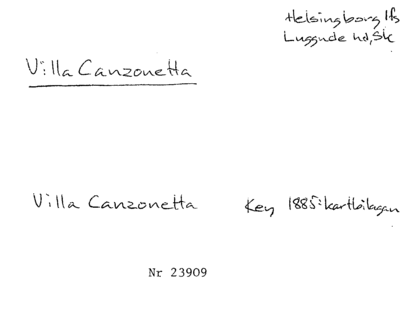 Helsingborg lfs
Luggude hd, Sk
Villa Canzonetta
Villa Canzonetta Key 1885: kartbilagan
Nr 23909